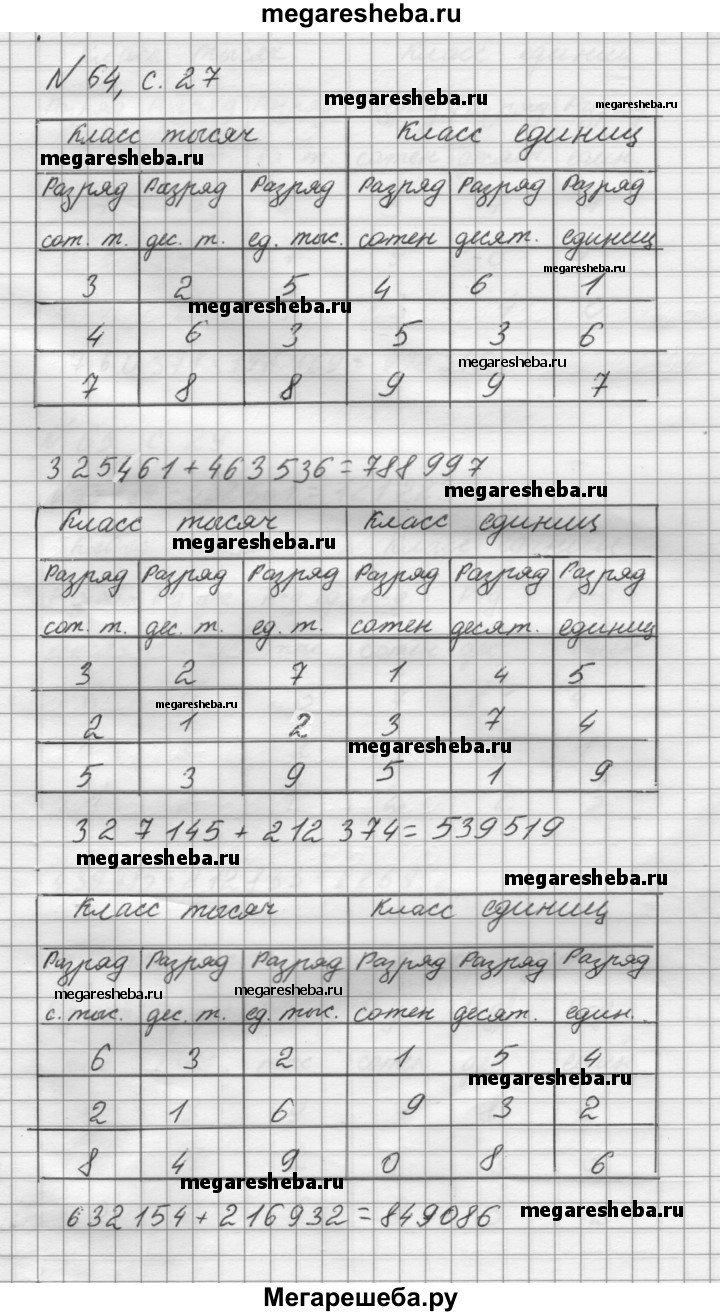 megaresheba.ru
N 64, с. 27
megaresheba.ru megaresheba.ru
Класс тысяч Класс единиц
megaresheba.ru
Разряд Разряд Разряд Разряд Разряд Разряд
сот. т. дес. т. ед. тыс. сотен десят. единиц
megaresheba.ru
3 2 5 4 6 1
megaresheba.ru
4 6 3 5 3 6
megaresheba.ru
7 8 8 9 9 7
325461+463536=788997
megaresheba.ru
Класс тысяч Класс единиц
megaresheba.ru
Разряд Разряд Разряд Разряд Разряд Разряд
сот. т. дес. т. ед. т. сотен десят. единиц
3 2 7 1 4 5
megaresheba.ru
2 1 2 3 7 4
megaresheba.ru
5 3 9 5 1 9
327145+212374=539519
megaresheba.ru
megaresheba.ru
Класс тысяч Класс единиц
Разряд Разряд Разряд Разряд Разряд Разряд
megaresheba.ru megaresheba.ru
с. тыс. дес. т. ед. тыс. сотен десят. един.
6 3 2 1 5 4
megaresheba.ru
2 1 6 9 3 2
8 4 9 0 8 6
megaresheba.ru
632154+216932=849086
megaresheba.ru
Мегарешеба.ру